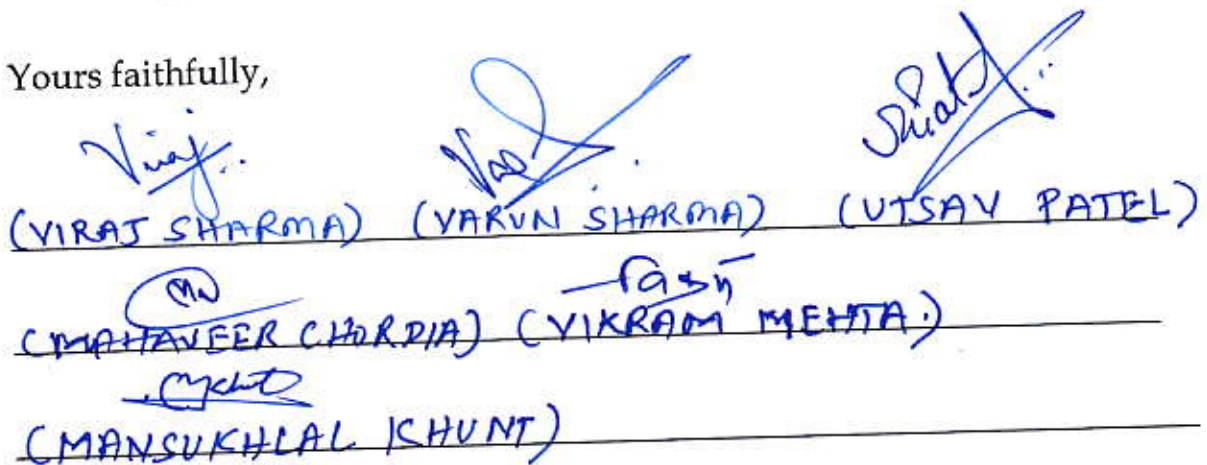 Yours faithfully,
Viraj
(VIRAJ SHARMA) (VARUN SHARMA) (UTSAV PATEL)
(MAHAVEER CHORDIA) (VIKRAM MEHTA.)
(MANSUKHLAL KHUNT)